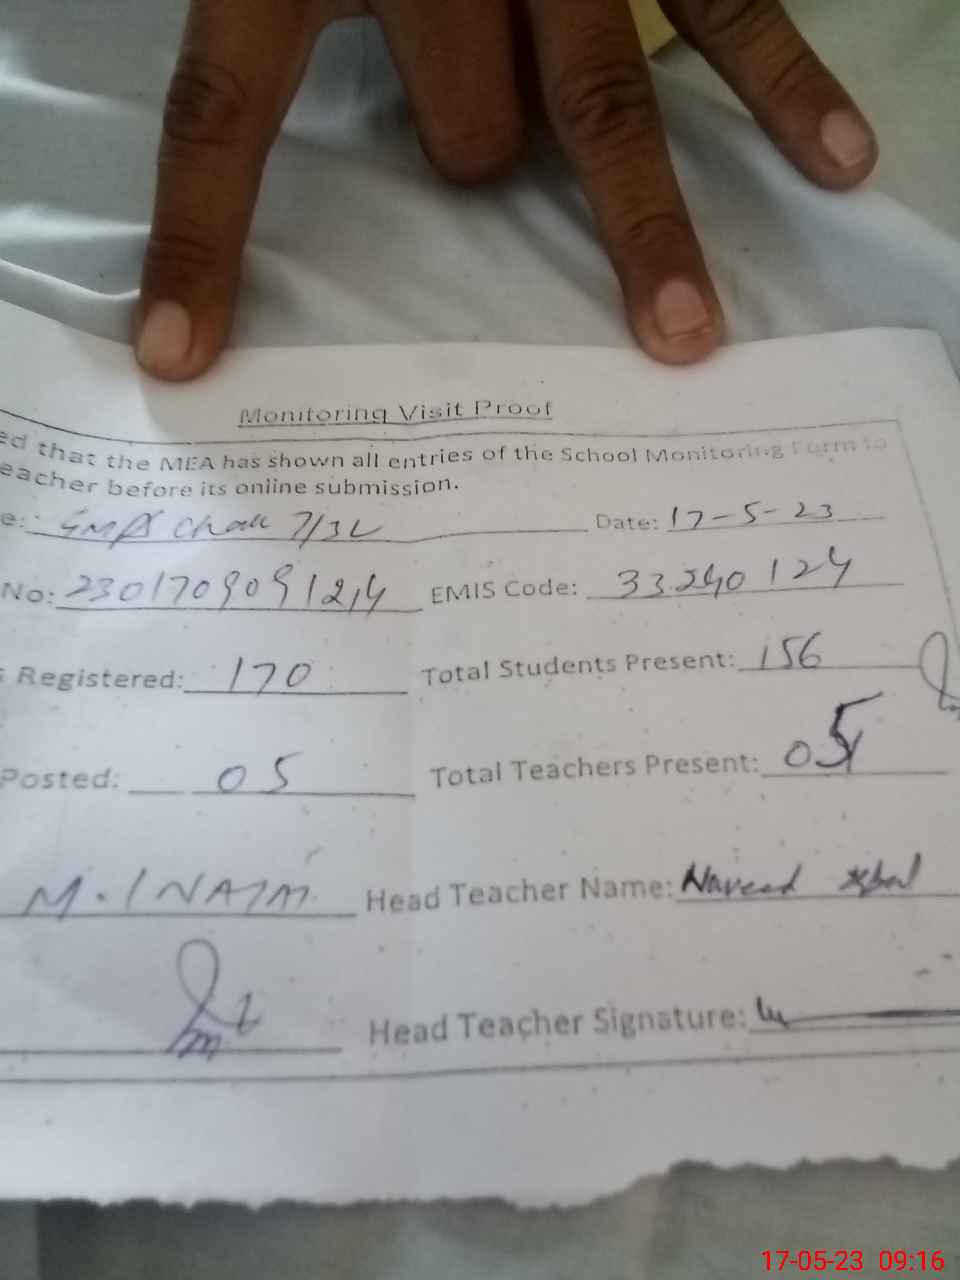 Monitoring Visit Proof
ed that the MEA has shown all entries of the School Monitoring Form to
eacher before its online submission.
e: GMPS Chak 7/3L Date: 17-5-23
No: 230170909124 EMIS Code: 33240124
s Registered: 170 Total Students Present: 156
Posted: 05 Total Teachers Present: 05
M. INAM Head Teacher Name: Naveed Iqbal
Head Teacher Signature:
17-05-23 09:16